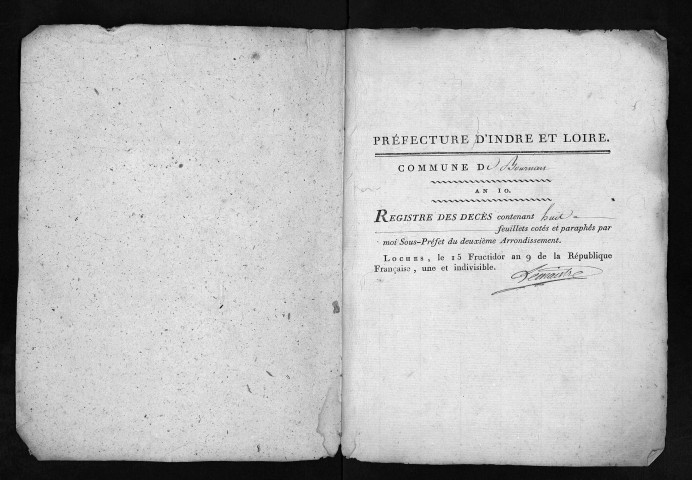 PRÉFECTURE D'INDRE ET LOIRE.
COMMUNE DE
AN 10.
REGISTRE DES DECÈS contenant huit
feuillets cotés et paraphés par
moi Sous-Préfet du deuxième Arrondissement.
LOCHES, le 15 Fructidor an 9 de la République
Française, une et indivisible.
Lemaistre